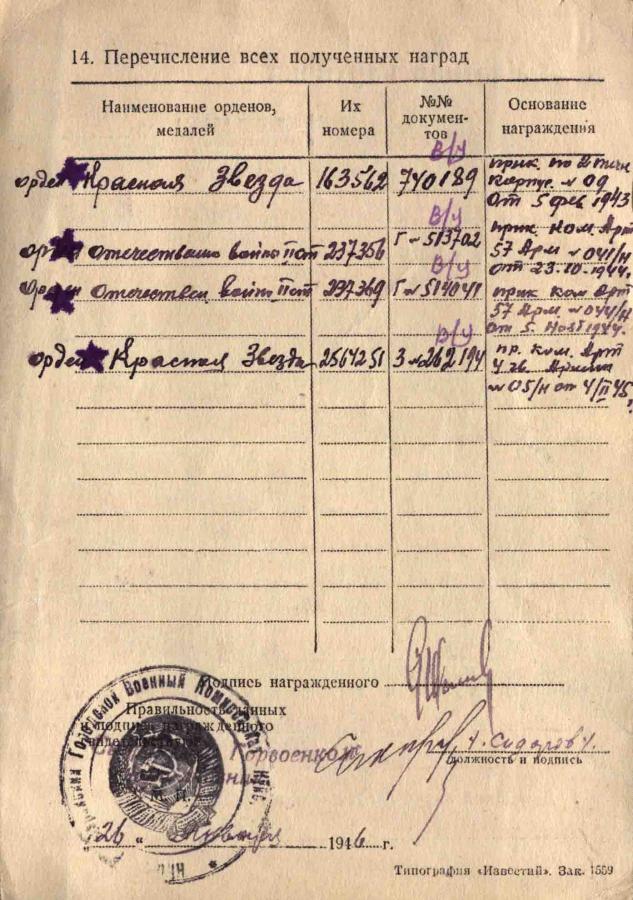 14. Перечисление всех полученных наград
Наименование орденов,
медалей
Их
номера
№№
докумен-
тов
Основание
награждения
В/у
орден Красная Звезда 163562 740189
прик. по
корпус. № 09
от 5 фев 1943
В/у
орден Отечествен войны II ст 237356 Г № 513702
прик. Ком. Арт
57 Арм. № 041/н
от 23.10.1944.
В/у
орден Отечествен войны II ст 237369 Г № 514041
прик Ком Арт
57 Арм. № 044/н
от 5. Нояб 1944.
В/у
орден Красная Звезда 2567251 З № 262194
пр. ком. Арт
4 гв. Армии
№ 05/н от 4/II 45
Подпись награжденного
Правильность данных
и подписи награжденного
свидетельствую
Горвоенком
/. Сидоров /.
должность и подпись
Городской Военный Комиссариат
М. П.
„26“ Января 1946 г.
Типография «Известий». Зак. 1559